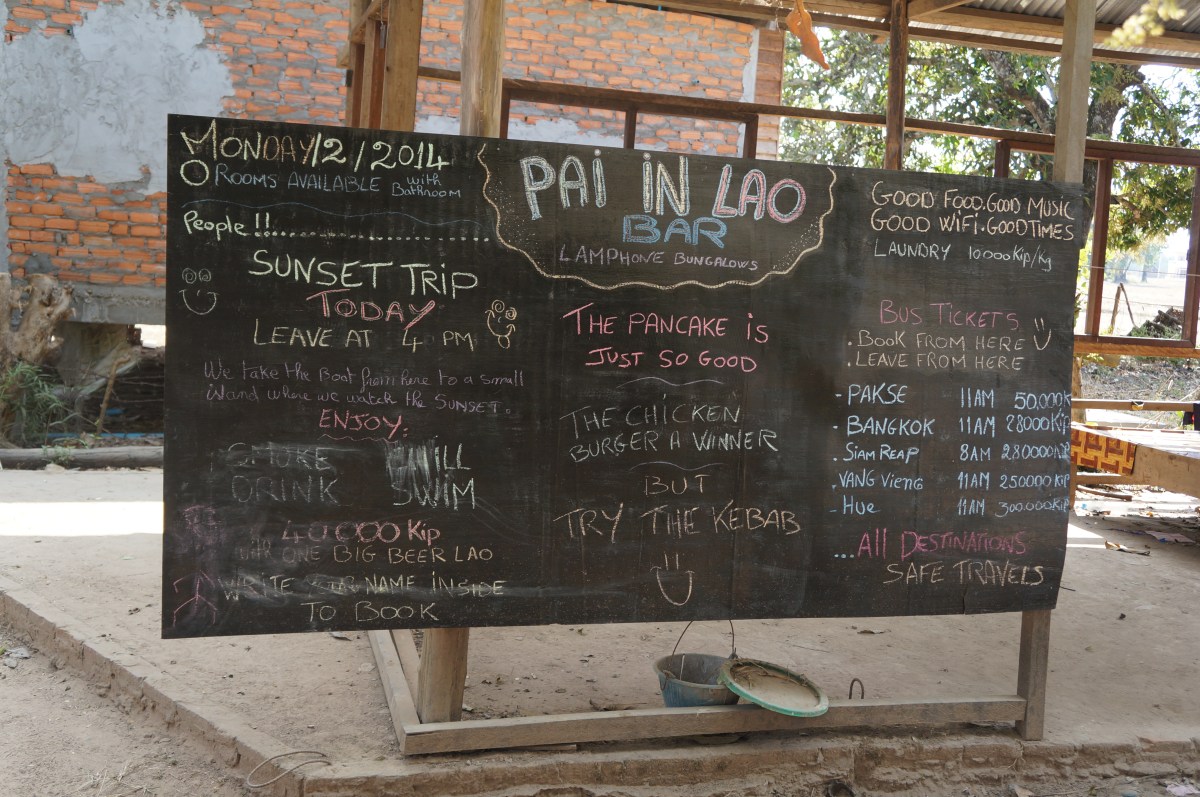 MONDAY/2/2014
O ROOMS AVAILABLE with Bathroom
People !!..............................
SUNSET TRIP
TODAY
LEAVE AT 4 PM
We take the Boat from here to a small
island where we watch the SUNSET.
ENJOY.
SMOKE CHILL
DRINK SWIM
40.000 Kip
with ONE BIG BEER LAO
WRITE YOUR NAME INSIDE
TO BOOK
PAI IN LAO
BAR
LAMPHONE BUNGALOWS
THE PANCAKE is
JUST SO GOOD
THE CHICKEN
BURGER A WINNER
BUT
TRY THE KEBAB
GOOD FOOD.GOOD MUSIC
GOOD WiFi.GOOD TIMES
LAUNDRY 10000 Kip/kg
BUS TICKETS
.BOOK FROM HERE
.LEAVE FROM HERE
- PAKSE 11AM 50.000K
- BANGKOK 11AM 28000 Kip
. SIAM REAP 8AM 280000 KIP
- VANG VIENG 11AM 250000 KIP
- HUE 11AM 300.000 Kip
...All DESTINATIONS
SAFE TRAVELS